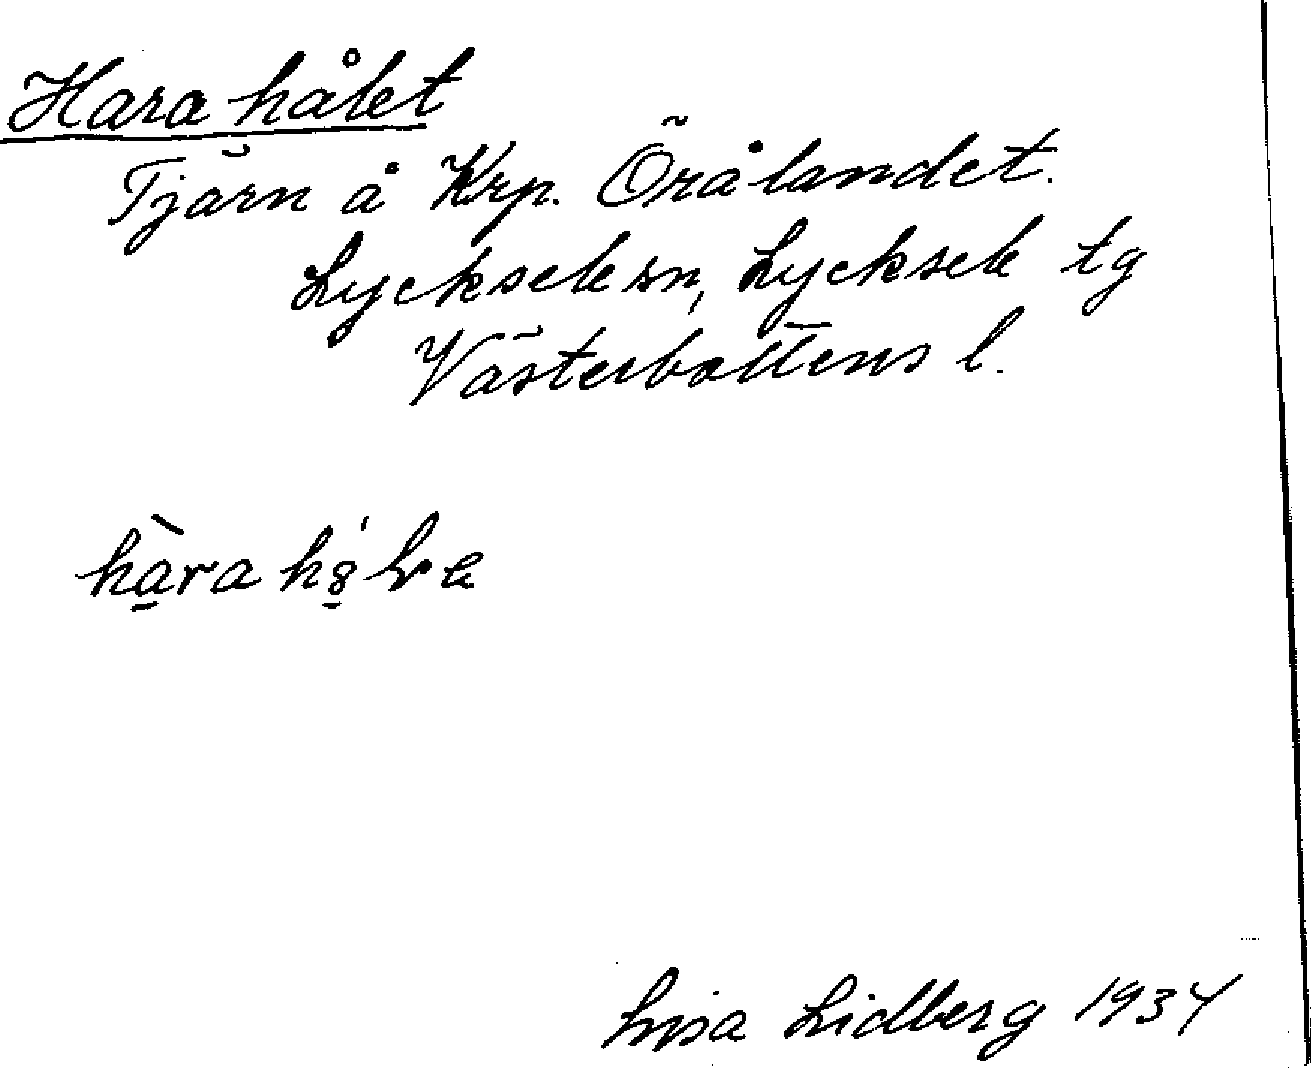 Hara hålet
Tjärn å Krp. Örålandet.
Lycksele sn, Lycksele tg
Västerbottens l.
Lisa Lidberg 1934